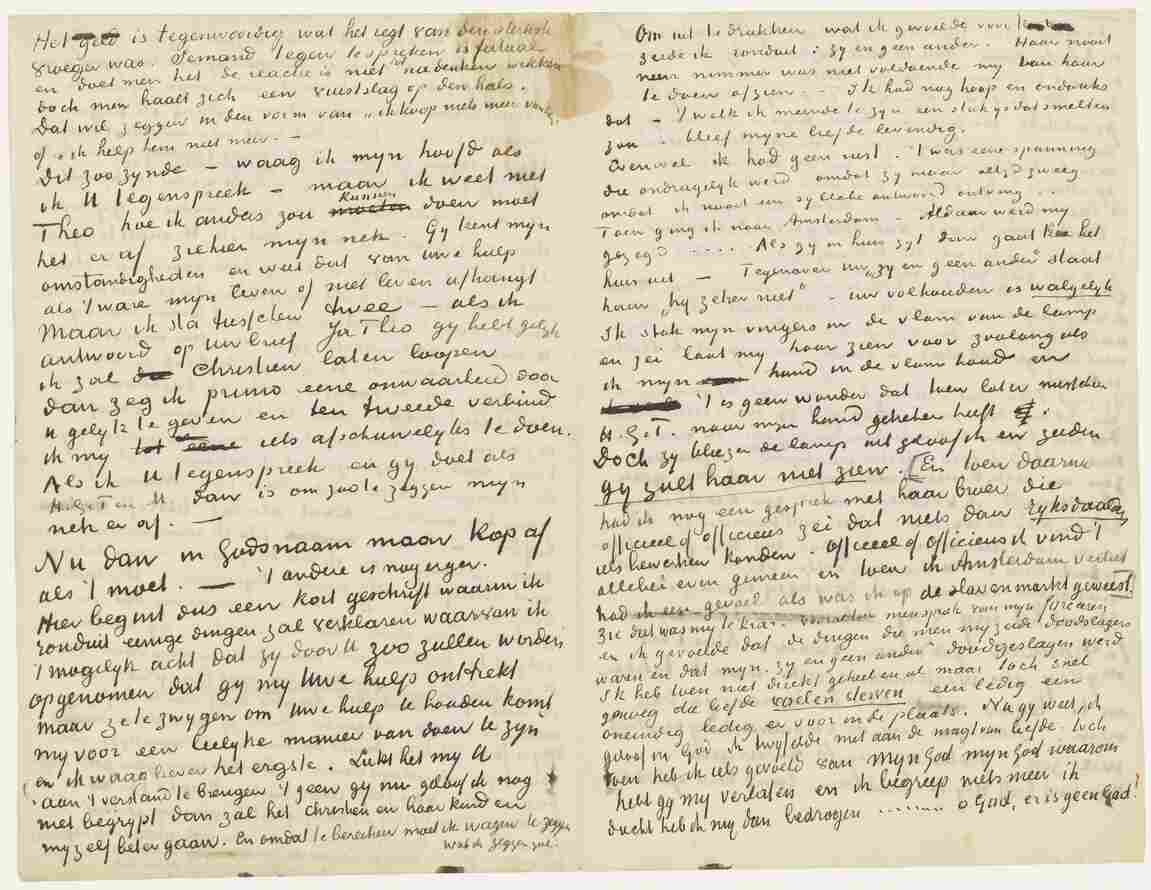 Het geld is tegenwoordig wat het regt van den sterkste
vroeger was. Iemand tegen te spreken is fataal
en doet men het de reactie is niet nadenken wekken
doch men haalt zich een vuistslag op den hals.
Dat wil zeggen in den vorm van „ik koop niets meer van hem”
of „ik help hem niet meer. —
Dit zoo zynde — waag ik myn hoofd als
ik U tegenspreek — maar ik weet niet
Theo hoe ik anders zou moeten kunnen doen moet
het er af ziehier myn nek. Gy kent myn
omstandigheden en weet dat van Uwe hulp
als 't ware myn leven of niet leven afhangt
Maar ik sta tusschen twee — als ik
antwoord op Uw brief Ja Theo gy hebt gelyk
ik zal Christien laten loopen
dan zeg ik primo eene onwaarheid door
U gelyk te geven en ten tweede verbind
ik my tot eene iets afschuwelyks te doen.
Als ik U tegenspreek en gy doet als
H.G.T en M dan is om zoo te zeggen myn
nek er af. —
Nu dan in Godsnaam maar kop af
als 't moet. — 't andere is nog erger.
Hier begint dus een kort geschrift waarin ik
ronduit eenige dingen zal verklaren waarvan ik
't mogelyk acht dat zy door U zoo zullen worden
opgenomen dat gy my Uwe hulp onttrekt
maar ze te zwygen om Uwe hulp te houden komt
my voor een leelyke manier van doen te zyn
en ik waag liever het ergste. Lukt het my U
aan 't verstand te brengen 't geen gy nu geloof ik nog
niet begrypt dan zal het Christien en haar kind en
my zelf beter gaan. En omdat te bereiken moet ik wagen te zeggen
wat ik zeggen zal.
Om uit te drukken wat ik gevoelde voor
zeide ik ronduit: zy en geen ander. Haar nooit
neen nimmer was niet voldoende my van haar
te doen afzien. Ik had nog hoop en ondanks
dat — 't welk ik meende te zyn een stuk ys dat smelten
zou — bleef myne liefde levendig.
Evenwel ik had geen rust. 't was eene spanning
die ondragelyk werd omdat zy maar altyd zweeg
omdat ik nooit een syllabe antwoord ontving.
Toen ging ik naar Amsterdam. Aldaar werd my
gezegd ..... Als gy in huis zyt dan gaat Kee het
huis uit — Tegenover uw „zy en geen ander” staat
haar „hy zeker niet” — uw volhouden is walgelyk
Ik stak myn vingers in de vlam van de lamp
en zei laat my haar zien voor zoolang als
ik myn hand in de vlam houd en
't is geen wonder dat toen later misschien
H.G.T. naar myn hand gekeken heeft.
Doch zy bliezen de lamp uit geloof ik en zeiden
gy zult haar niet zien. En toen daarna
had ik nog een gesprek met haar broer die
officieel of officieus zei dat niets dan ryksdaalders
iets bewerken konden. Officieel of officieus ik vind 't
allebei even gemeen en toen ik Amsterdam verliet
had ik een gevoel als was ik op de slavenmarkt geweest.
Zie dat was my te kras
en ik gevoelde dat de dingen die men my zeide doodslagers
waren en dat myn „zy en geen ander” doodgeslagen werd
Ik heb toen niet direkt geheel en al maar toch snel
genoeg die liefde voelen sterven een ledig een
oneindig ledig er voor in de plaats. Nu gy weet, ik
geloof in God ik twyfelde niet aan de magt van liefde. toch
toen heb ik iets gevoeld van Myn God myn God waarom
hebt gy my verlaten en ik begreep niets meer ik
dacht heb ik my dan bedrogen ........ o God, er is geen God!